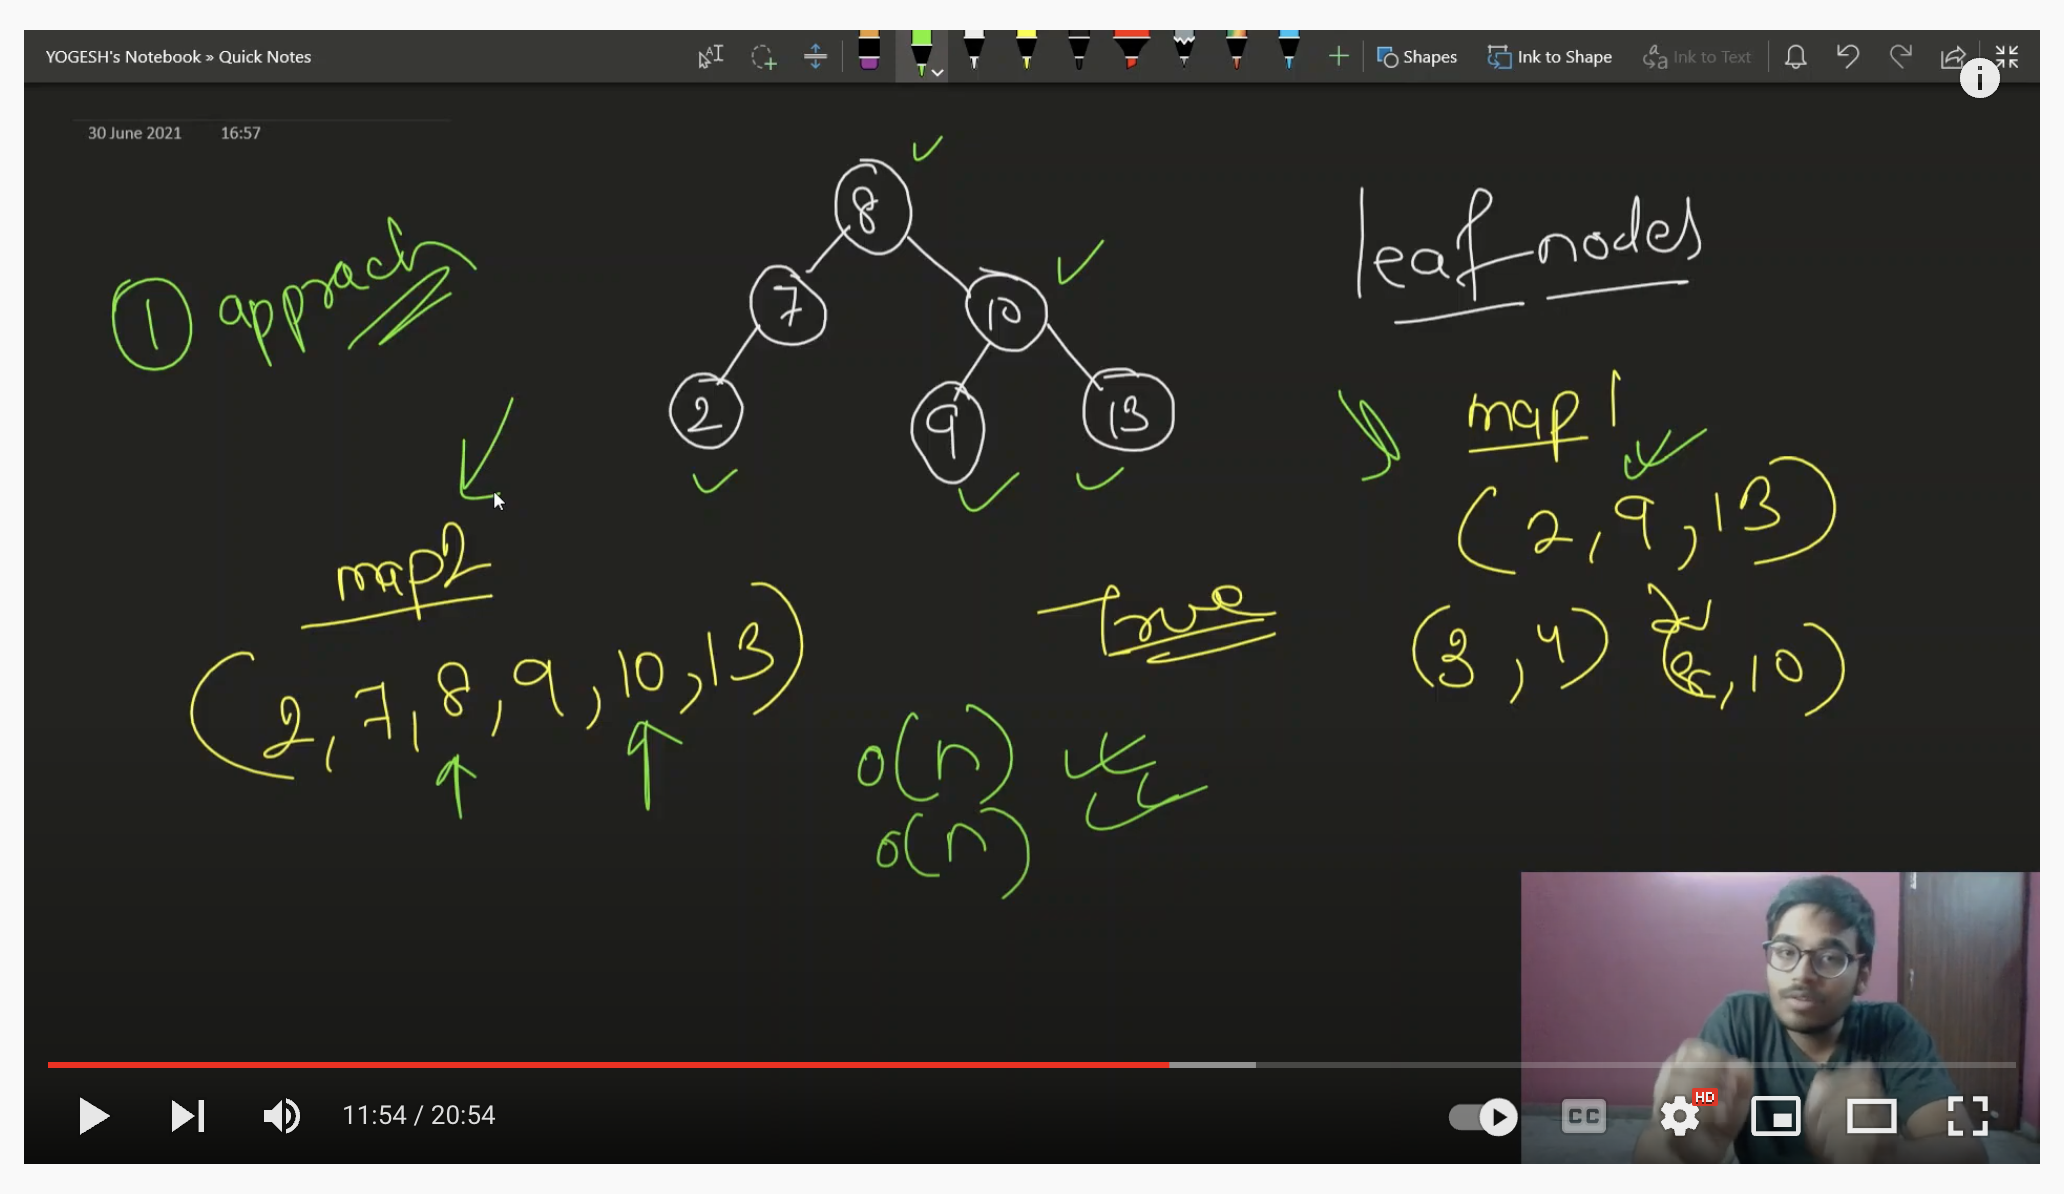 YOGESH's Notebook » Quick Notes
Shapes
Ink to Shape
Ink to Text
30 June 2021 16:57
8
7
10
2
9
13
① apprach
leaf nodes
map 1
(2, 9, 13)
(3, 4)
(8, 10)
map2
(2, 7, 8, 9, 10, 13)
True
o(n)
o(n)
11:54 / 20:54
CC
HD